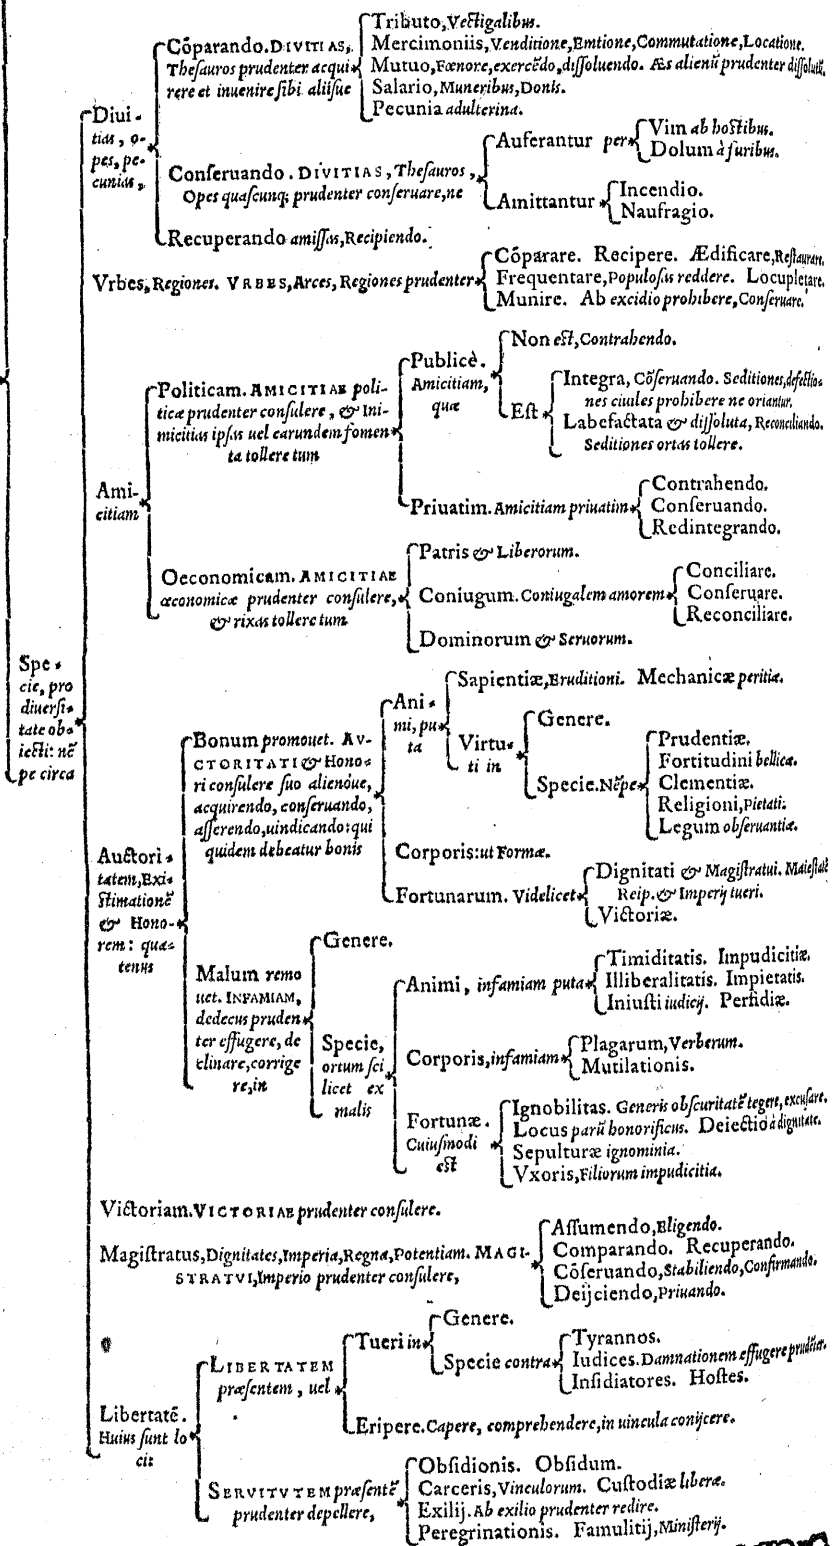 Tributo, Vectigalibus.
Cōparando. DIVITIAS,
Mercimoniis, Venditione, Emtione, Commutatione, Locatione.
Theſauros prudenter acqui
Mutuo, Fœnore, exercēdo, diſſoluendo. Æs alienū prudenter diſſoluēd.
rere et inuenire ſibi aliiſue
Salario, Muneribus, Donis.
Pecunia adulterina.
Diui-
tias, o-
pes, pe-
cunias,
Conſeruando. DIVITIAS, Theſauros,
Opes quaſcunq; prudenter conſeruare, ne
Auferantur per
Vim ab hoſtibus.
Dolum à furibus.
Amittantur
Incendio.
Naufragio.
Recuperando amiſſas, Recipiendo.
Vrbes, Regiones. VRBES, Arces, Regiones prudenter
Cōparare. Recipere. Ædificare, Reſtaurare.
Frequentare, Populoſas reddere. Locupletare.
Munire. Ab excidio prohibere, Conſeruare.
Ami-
citiam
Politicam. AMICITIAE poli-
ticæ prudenter conſulere, & Ini-
micitias ipſas uel earundem fomen
ta tollere tum
Publicè.
Amicitiam,
quæ
Non eſt, Contrahendo.
Eſt
Integra, Cōſeruando. Seditiones, defectio-
nes ciuiles prohibere ne oriantur.
Labefactata & diſſoluta, Reconciliando.
Seditiones ortas tollere.
Priuatim. Amicitiam priuatim
Contrahendo.
Conſeruando.
Redintegrando.
Oeconomicam. AMICITIAE
œconomicæ prudenter conſulere,
& rixas tollere tum
Patris & Liberorum.
Coniugum. Coniugalem amorem
Conciliare.
Conſeruare.
Reconciliare.
Dominorum & Seruorum.
Spe-
cie, pro
diuerſi-
tate ob-
iecti: nē
pe circa
Auctori-
tatem, Exi-
ſtimationē
& Hono-
rem: qua-
tenus
Bonum promouet. AV-
CTORITATI & Hono-
ri conſulere ſuo alienoue,
acquirendo, conſeruando,
aſſerendo, uindicando: qui
quidem debeatur bonis
Ani-
mi, pu-
ta
Sapientiæ, Eruditioni. Mechanicæ peritiæ.
Virtu-
ti in
Genere.
Specie. Nēpe
Prudentiæ.
Fortitudini bellicæ.
Clementiæ.
Religioni, Pietati.
Legum obſeruantiæ.
Corporis: ut Formæ.
Fortunarum. Videlicet
Dignitati & Magiſtratui. Maieſtatē
Reip. & Imperij tueri.
Victoriæ.
Malum remo
uet. INFAMIAM,
dedecus pruden
ter effugere, de
clinare, corrige
re, in
Genere.
Specie,
ortum ſci
licet ex
malis
Animi, infamiam puta
Timiditatis. Impudicitiæ.
Illiberalitatis. Impietatis.
Iniuſti iudicij. Perfidiæ.
Corporis, infamiam
Plagarum, Verberum.
Mutilationis.
Fortunæ.
Cuiuſmodi
eſt
Ignobilitas. Generis obſcuritatē tegere, excuſare.
Locus parū honorificus. Deiectio à dignitate.
Sepulturæ ignominia.
Vxoris, Filiorum impudicitia.
Victoriam. VICTORIAE prudenter conſulere.
Magiſtratus, Dignitates, Imperia, Regna, Potentiam. MAGI-
STRATVI, Imperio prudenter conſulere,
Aſſumendo, Eligendo.
Comparando. Recuperando.
Cōſeruando, Stabiliendo, Confirmando.
Deijciendo, Priuando.
Libertatē.
Huius ſunt lo
ci:
LIBERTATEM
præſentem, uel
Tueri in
Genere.
Specie contra
Tyrannos.
Iudices. Damnationem effugere prudēter.
Inſidiatores. Hoſtes.
Eripere. Capere, comprehendere, in uincula conijcere.
SERVITVTEM præſentē
prudenter depellere,
Obſidionis. Obſidum.
Carceris, Vinculorum. Cuſtodiæ liberæ.
Exilij. Ab exilio prudenter redire.
Peregrinationis. Famulitij, Miniſterij.